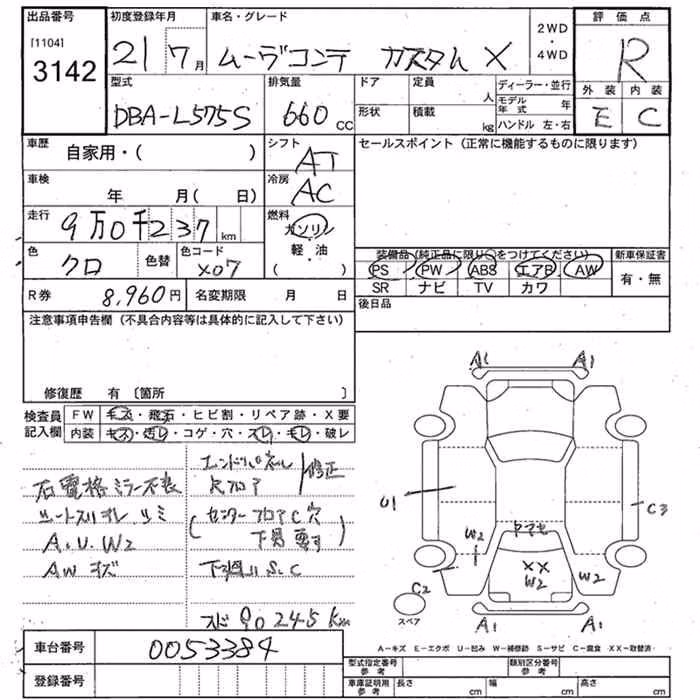 出品番号
[1104]
3142
初度登録年月
21 7月
車名・グレード
ムーヴコンテ カスタム X
2WD
・
4WD
評価点
R
外装 内装
E C
型式
DBA-L575S
排気量
660 CC
ドア
定員
人
形状
積載
kg
ディーラー・並行
モデル年式 年
ハンドル 左・右
車歴
自家用・( )
シフト
AT
セールスポイント(正常に機能するものに限ります)
車検
年 月( 日)
冷房
AC
走行
9万0千237 km
燃料
ガソリン
軽・油
・
( )
色
クロ
色替
色コード
X07
装備品(純正品に限り○をつけてください)
新車保証書
PS PW ABS エアB AW
有・無
SR ナビ TV カワ
R券
8,960円
名変期限 月 日
後日品
注意事項申告欄(不具合内容等は具体的に記入して下さい)
修復歴 有〔箇所 〕
検査員記入欄
FW キズ・飛石・ヒビ割・リペア跡・X要
内装 キズ・汚レ・コゲ・穴・スレ・モレ・破レ
右電格ミラー不良
シートスリキレ、シミ
A.U.W2
AW キズ
エンドパネル
Rフロア
修正
(センターフロアC穴
下回サビC
スピ 90245km
A1 A1
U1
C3
W2
ヤマセ
XX
W2
W2
C2
スペア
A1 A1
A-キズ E-エクボ U-凹み W-補修跡 S-サビ C-腐食 XX-取替済
車台番号
0053384
登録番号
型式指定番号
参考
類別区分番号
参考
車庫証明用
参考
長さ cm
幅 cm
高さ cm